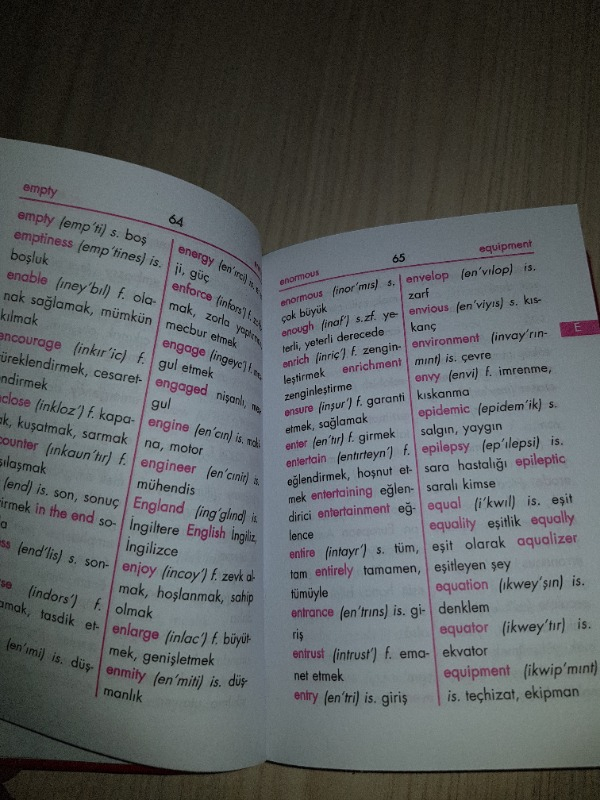 empty
64
empty (emp'ti) s. boş
emptiness (emp'tines) is.
boşluk
enable (ıney'bıl) f. ola-
nak sağlamak, mümkün
kılmak
encourage (inkır'ic) f.
yüreklendirmek, cesaret-
lendirmek
(inkloz') f. kapa-
kuşatmak, sarmak
(ınkaun'tır) f.
(end) is. son, sonuç
in the end so-
(end'lis) s. son-
(indors') f.
tasdik et-
(en'ımi) is. düş-
energy (en'ırci)
ji, güç
enforce (infors') f.
mak, zorla yaptırmak,
mecbur etmek
engage (ingeyc') f.
gul etmek
engaged nişanlı, meş-
gul
engine (en'cın) is. maki-
na, motor
engineer (en'cınir) is.
mühendis
England (ing'glınd) is.
İngiltere English İngiliz,
İngilizce
enjoy (incoy') f. zevk al-
mak, hoşlanmak, sahip
olmak
enlarge (inlac') f. büyüt-
mek, genişletmek
enmity (en'miti) is. düş-
manlık
enormous
65
equipment
enormous (inor'mıs) s.
çok büyük
enough (inaf') s.zf. ye-
terli, yeterli derecede
enrich (inriç') f. zengin-
leştirmek enrichment
zenginleştirme
ensure (inşur') f. garanti
etmek, sağlamak
enter (en'tır) f. girmek
entertain (entırteyn') f.
eğlendirmek, hoşnut et-
mek entertaining eğlen-
dirici entertainment eğ-
lence
entire (intayr') s. tüm,
tam entirely tamamen,
tümüyle
entrance (en'trıns) is. gi-
riş
entrust (intrust') f. ema-
net etmek
entry (en'tri) is. giriş
envelop (en'vılop) is.
zarf
envious (en'viyıs) s. kıs-
kanç
environment (invay'rın-
mınt) is. çevre
envy (envi) f. imrenme,
kıskanma
epidemic (epidem'ik) s.
salgın, yaygın
epilepsy (ep'ılepsi) is.
sara hastalığı epileptic
saralı kimse
equal (i'kwıl) is. eşit
equality eşitlik equally
eşit olarak aqualizer
eşitleyen şey
equation (ıkwey'şın) is.
denklem
equator (ikwey'tır) is.
ekvator
equipment (ikwip'mınt)
is. teçhizat, ekipman
E